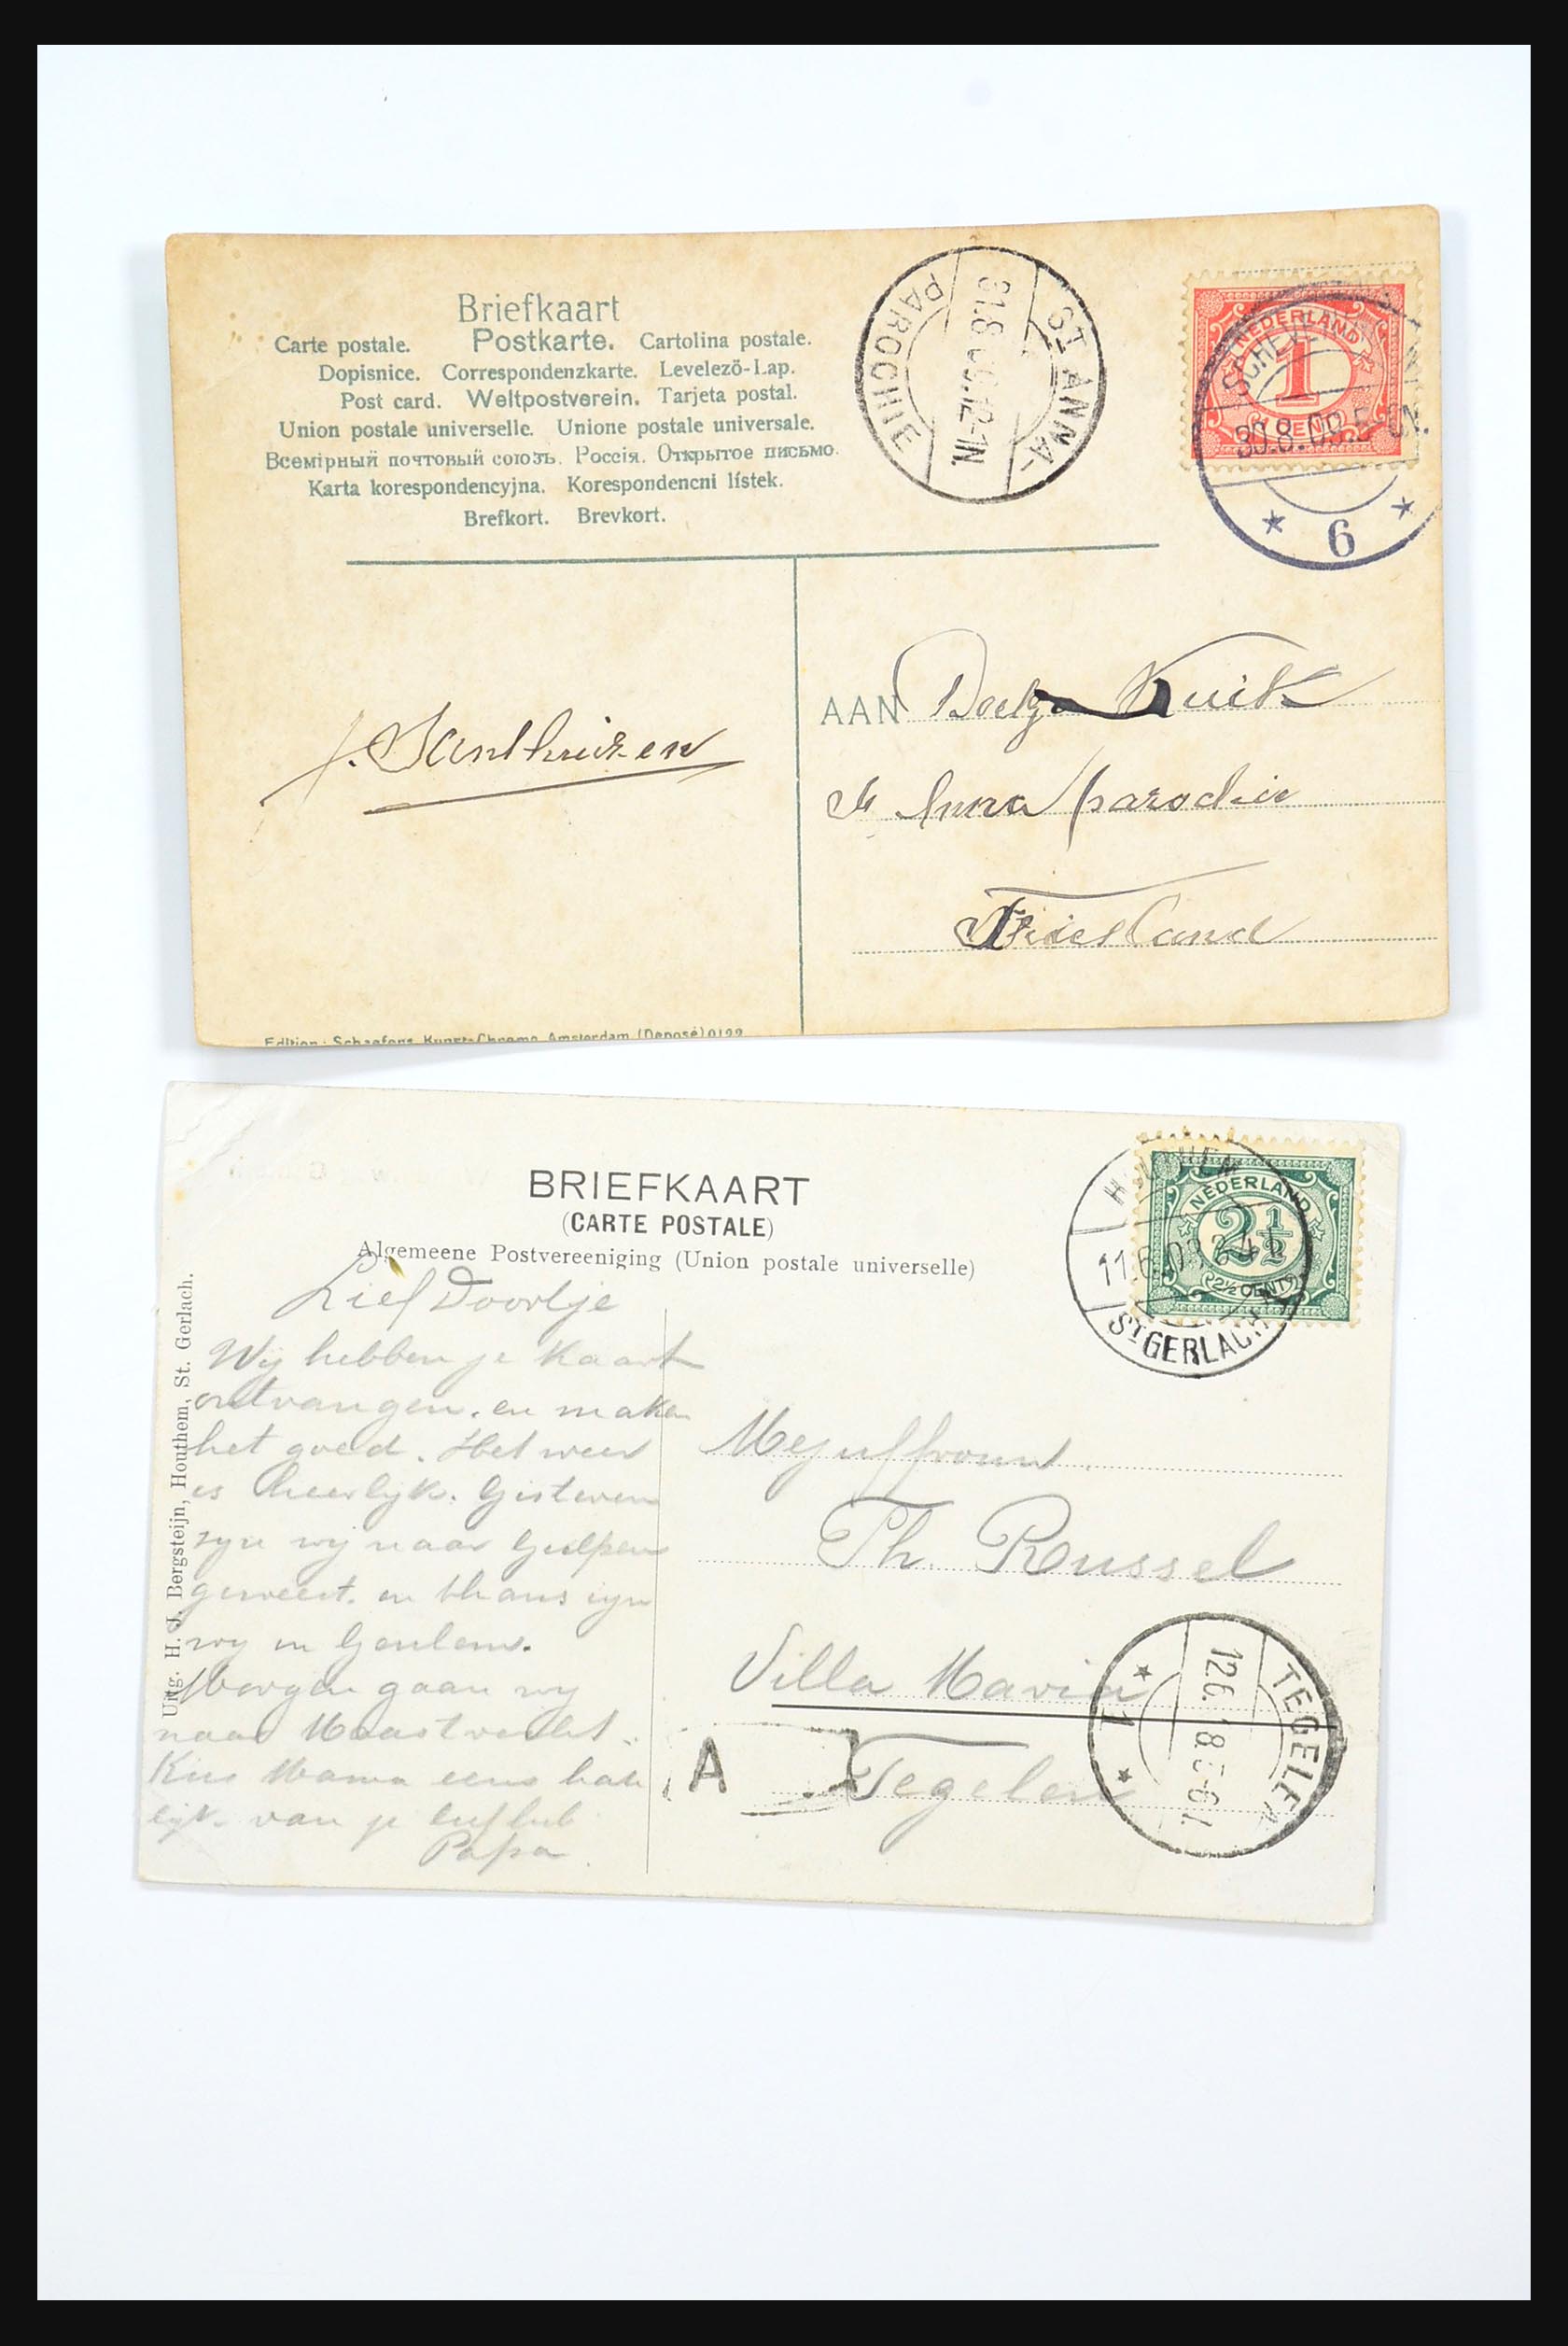 Briefkaart
Carte postale. Postkarte. Cartolina postale.
Dopisnice. Correspondenzkarte. Levelező-Lap.
Post card. Weltpostverein. Tarjeta postal.
Union postale universelle. Unione postale universale.
Всемірный почтовый союзъ. Россія. Открытое письмо.
Karta korespondencyjna. Korespondencni lístek.
Brefkort. Brevkort.
ST ANNA-
PAROCHIE
12-1N.
NEDERLAND
1
CENT
30.8.09.5-6N.
6
J. Santhuizen
AAN Kuik
St Anna parochie
Friesland
Edition: Schaefers Kunst-Chromo, Amsterdam (Deposé) 0122
BRIEFKAART
(CARTE POSTALE)
Algemeene Postvereeniging (Union postale universelle)
NEDERLAND
2½
2½ CENT
HOUTHEM
ST GERLACH
Lief Doortje
Wij hebben je Kaart
ontvangen. en maken
het goed. Het weer
is heerlijk. Gisteren
zijn wij naar Gulpen
geweest. en thans zijn
wij in Geulem.
Morgen gaan wij
naar Maastricht.
Kus Mama eens harte
lijk. van je liefheb
Papa
Uitg. H. J. Bergsteijn, Houthem, St. Gerlach.
Mejuffrouw
Th. Russel
Villa Maria
Tegelen
A
TEGELEN
1